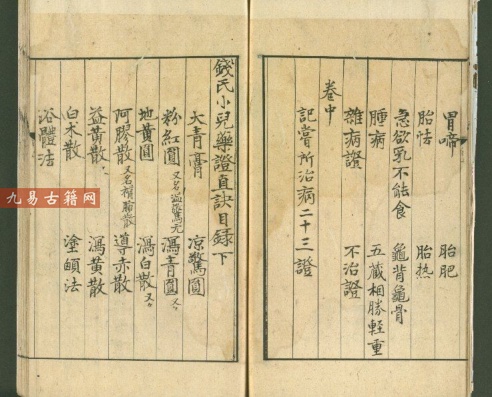 胃啼 胎肥
胎怯 胎热
急欲乳不能食 龜背龜骨
腫病 五藏相勝輕重
雜病證 不治證
卷中
記嘗所治病二十三證
錢氏小兒藥證直訣目録下
大青膏 凉驚圓
粉紅圓 又名温驚圓 瀉青圓
地黄圓 瀉白散
阿膠散 又名補肺散 導赤散
益黄散 瀉黄散
白朮散 塗顖法
浴體法
九易古籍网